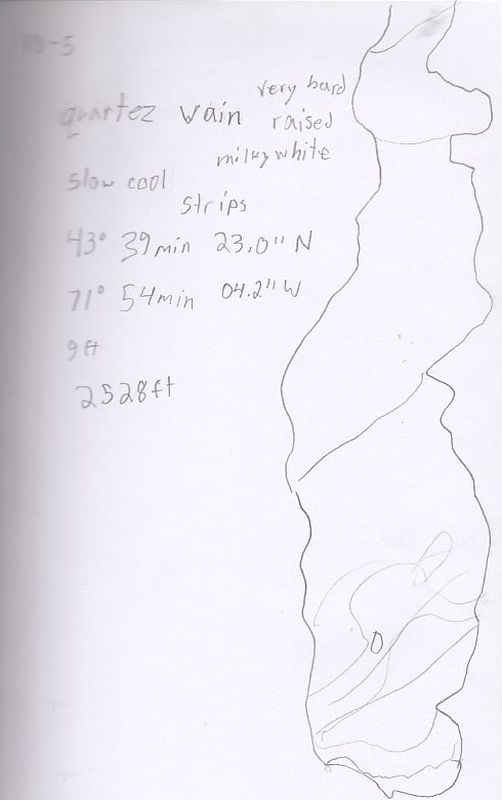 -5
very hard
quartez vain raised
milky white
slow cool
strips
43° 39min 23.0" N
71° 54min 04.2" W
9ft
2528ft